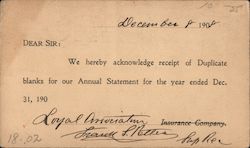 December 8 1908
DEAR SIR:
We hereby acknowledge receipt of Duplicate
blanks for our Annual Statement for the year ended Dec.
31, 190
Loyal Association
Insurance Company.
18-02